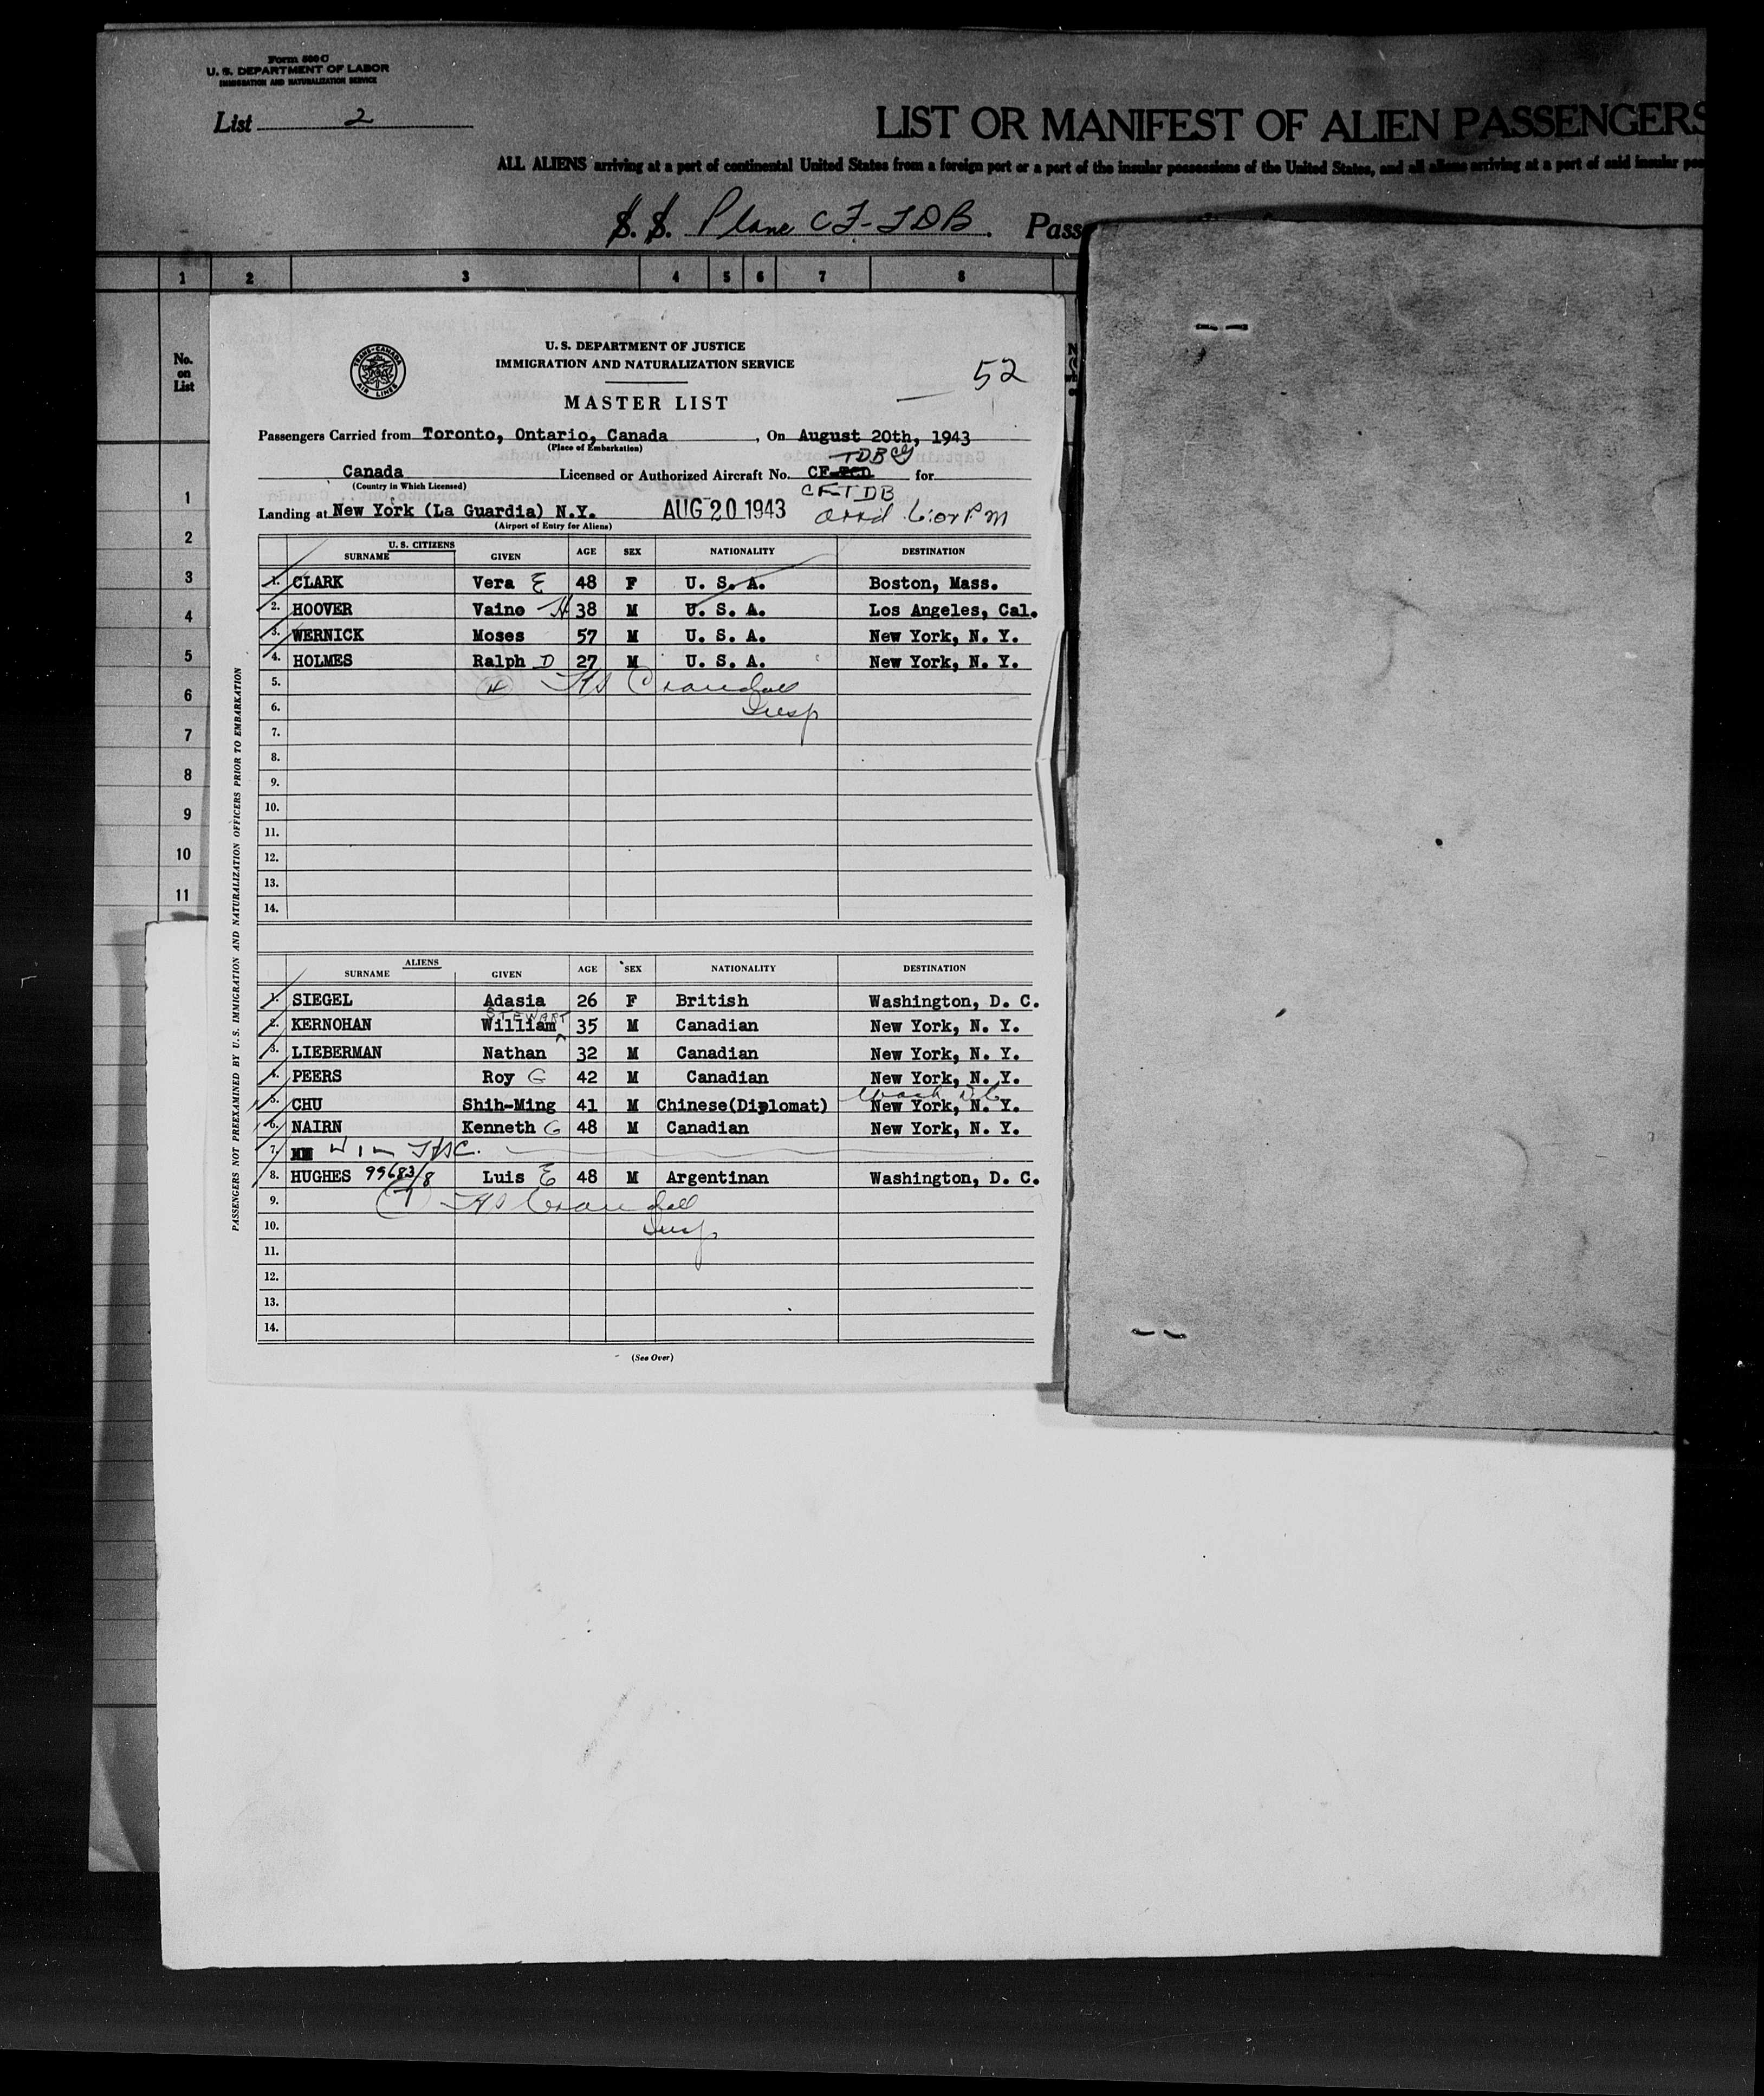 Form 500 C
U. S. DEPARTMENT OF LABOR
IMMIGRATION AND NATURALIZATION SERVICE
List 2
LIST OR MANIFEST OF ALIEN PASSENGERS
ALL ALIENS arriving at a port of continental United States from a foreign port or a port of the insular possessions of the United States, and all aliens arriving at a port of said insular
S. S. Plane CF-TDB. Pass
1 2 3 4 5 6 7 8
No. on List
1
2
3
4
5
6
7
8
9
10
11
TRANS-CANADA AIR LINES
U. S. DEPARTMENT OF JUSTICE
IMMIGRATION AND NATURALIZATION SERVICE
52
MASTER LIST
Passengers Carried from Toronto, Ontario, Canada, On August 20th, 1943
(Place of Embarkation)
TDB
Canada Licensed or Authorized Aircraft No. for
(Country in Which Licensed)
CF-TDB
Landing at New York (La Guardia) N.Y. AUG 20 1943
(Airport of Entry for Aliens)
U. S. CITIZENS
SURNAME GIVEN AGE SEX NATIONALITY DESTINATION
1. CLARK Vera E 48 F U. S. A. Boston, Mass.
2. HOOVER Vaino H 38 M U. S. A. Los Angeles, Cal.
3. WERNICK Moses 57 M U. S. A. New York, N. Y.
4. HOLMES Ralph D 27 M U. S. A. New York, N. Y.
5. Crandall
6. Insp
7.
8.
9.
10.
11.
12.
13.
14.
ALIENS
SURNAME GIVEN AGE SEX NATIONALITY DESTINATION
1. SIEGEL Adasia 26 F British Washington, D. C.
STEWART
2. KERNOHAN William 35 M Canadian New York, N. Y.
3. LIEBERMAN Nathan 32 M Canadian New York, N. Y.
4. PEERS Roy G 42 M Canadian New York, N. Y.
Wash DC
5. CHU Shih-Ming 41 M Chinese(Diplomat) New York, N. Y.
6. NAIRN Kenneth G 48 M Canadian New York, N. Y.
7.
8. HUGHES 99683/8 Luis E 48 M Argentinan Washington, D. C.
9. (7) Crandall
10. Insp
11.
12.
13.
14.
(See Over)
PASSENGERS NOT PREEXAMINED BY U. S. IMMIGRATION AND NATURALIZATION OFFICERS PRIOR TO EMBARKATION